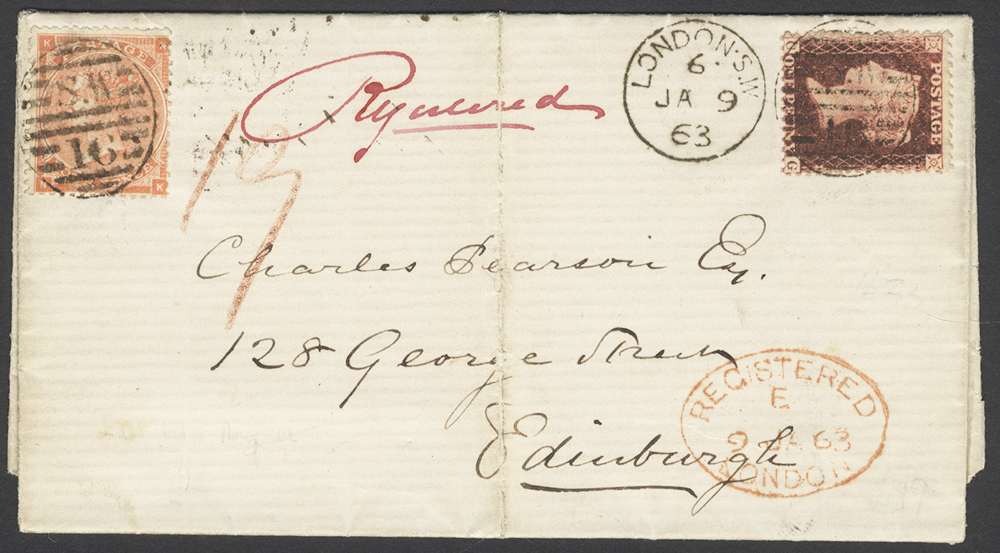 Registered
LONDON·S.W
6
JA 9
63
S.W
16
K
POSTAGE
16
G
Charles Pearson Esq.
128 George Street
Edinburgh
REGISTERED
E
9 JA 63
LONDON